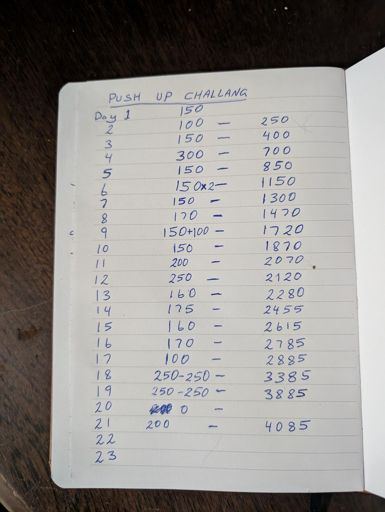 PUSH UP CHALLANG
Day 1 150
2 100 — 250
3 150 — 400
4 300 — 700
5 150 — 850
6 150x2 — 1150
7 150 — 1300
8 170 — 1470
9 150+100 — 1720
10 150 — 1870
11 200 — 2070
12 250 — 2120
13 160 — 2280
14 175 — 2455
15 160 — 2615
16 170 — 2785
17 100 — 2885
18 250-250 — 3385
19 250-250 — 3885
20 0 —
21 200 — 4085
22
23